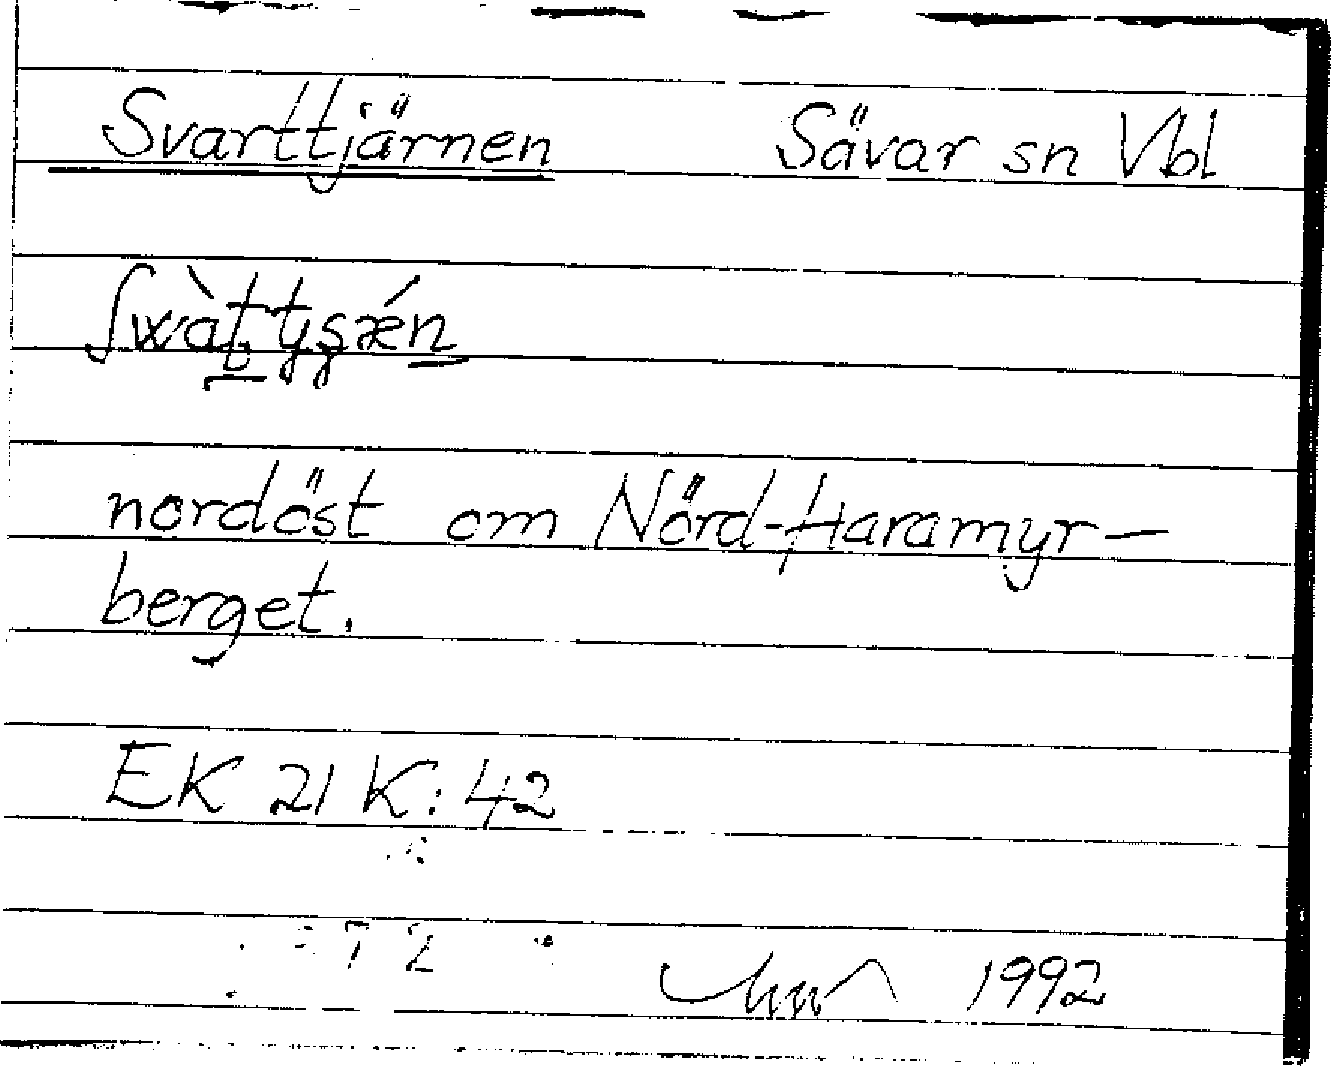 Svarttjärnen Sävar sn Vbl
nordöst om Nörd-Haramyr-
berget.
EK 21 K: 42
1992